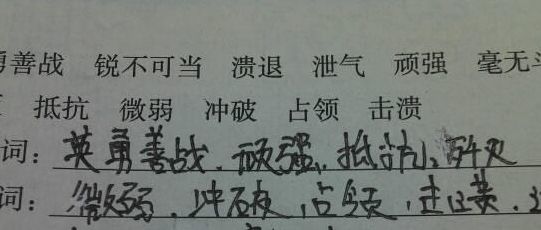 勇善战 锐不可当 溃退 泄气 顽强 毫无斗
抵抗 微弱 冲破 占领 击溃
词：英勇善战、顽强、抵抗、歼灭
词：微弱、冲破、占领、